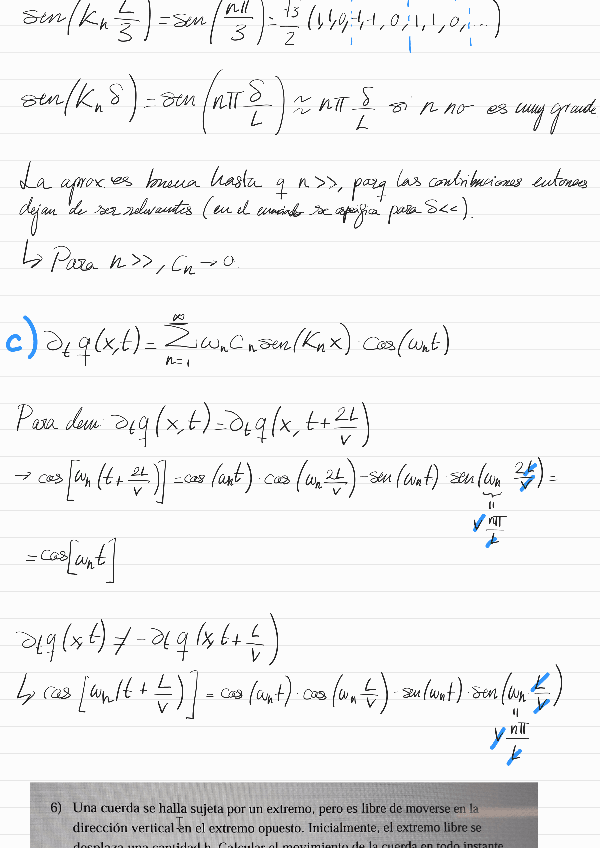 sen(Kn L/3) = sen(nπ/3) = √3/2 (1,1,0,-1,-1,0,1,1,0,...)
sen(Kn δ) = sen(nπ δ/L) ≈ nπ δ/L si n no es muy grande
La aprox es buena hasta q n>>, porq las contribuciones entonces
dejan de ser relevantes (en el enunciado se especifica para δ<<).
↳ Para n>>, Cn → 0.
c) ∂t q(x,t) = ∑_{n=1}^{∞} ωn Cn sen(Kn x) · cos(ωn t)
Para dem: ∂t q(x,t) = ∂t q(x, t + 2L/v)
→ cos[ωn(t + 2L/v)] = cos(ωn t) · cos(ωn 2L/v) - sen(ωn t) · sen(ωn 2L/v) =
=
v nπ/L
= cos[ωn t]
∂t q(x,t) ≠ -∂t q(x, t + L/v)
↳ cos[ωn(t + L/v)] = cos(ωn t) · cos(ωn L/v) - sen(ωn t) · sen(ωn L/v)
=
v nπ/L
6) Una cuerda se halla sujeta por un extremo, pero es libre de moverse en la
dirección vertical en el extremo opuesto. Inicialmente, el extremo libre se
desplaza una cantidad h. Calcular el movimiento de la cuerda en todo instante